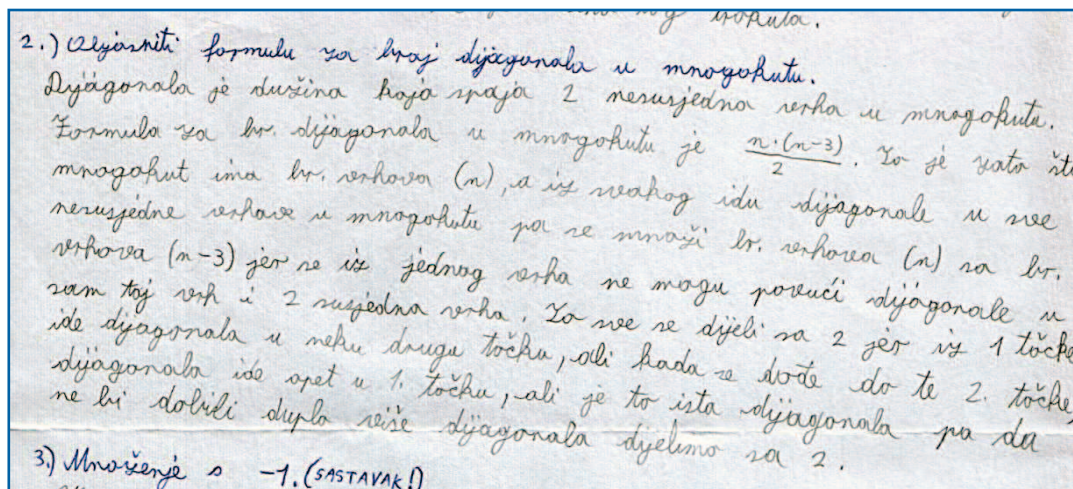 trokuta.
2.) Objasniti formulu za broj dijagonala u mnogokutu.
Dijagonala je dužina koja spaja 2 nesusjedna vrha u mnogokutu.
Formula za br. dijagonala u mnogokutu je n·(n-3)/2. To je zato što
mnogokut ima br. vrhova (n), a iz svakog idu dijagonale u sve
nesusjedne vrhove u mnogokutu pa se množi br. vrhova (n) sa br.
vrhova (n-3) jer se iz jednog vrha ne mogu povući dijagonale u
sam taj vrh i 2 susjedna vrha. To sve se dijeli sa 2 jer iz 1 točke
ide dijagonala u neku drugu točku, ali kada se dođe do te 2. točke,
dijagonala ide opet u 1. točku, ali je to ista dijagonala pa da
ne bi dobili duplo više dijagonala dijelimo sa 2.
3.) Množenje s -1. (SASTAVAK!)